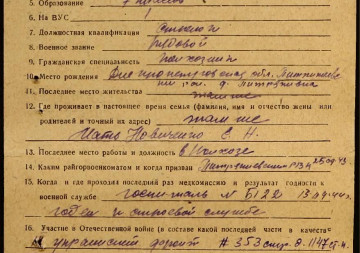 5. Образование 7 классов
6. На ВУС
7. Должностная квалификация стрелок
8. Военное звание рядовой
9. Гражданская специальность колхозник
10. Место рождения Днепропетровская обл.
11. Последнее место жительства там же
12. Где проживает в настоящее время семья (фамилия, имя и отчество жены или
родителей и точный их адрес) там же
мать Новиченко Е. Н.
13. Последнее место работы и должность в колхозе
14. Каким райгорвоенкоматом и когда призван РВК 43
15. Когда и где проходил последний раз медкомиссию и результат годности к
военной службе госпиталь № 5122 13.09.44 г.
годен к строевой службе
16. Участие в Отечественной войне (в составе какой последней части и в качестве—
украинский фронт # 353 1147